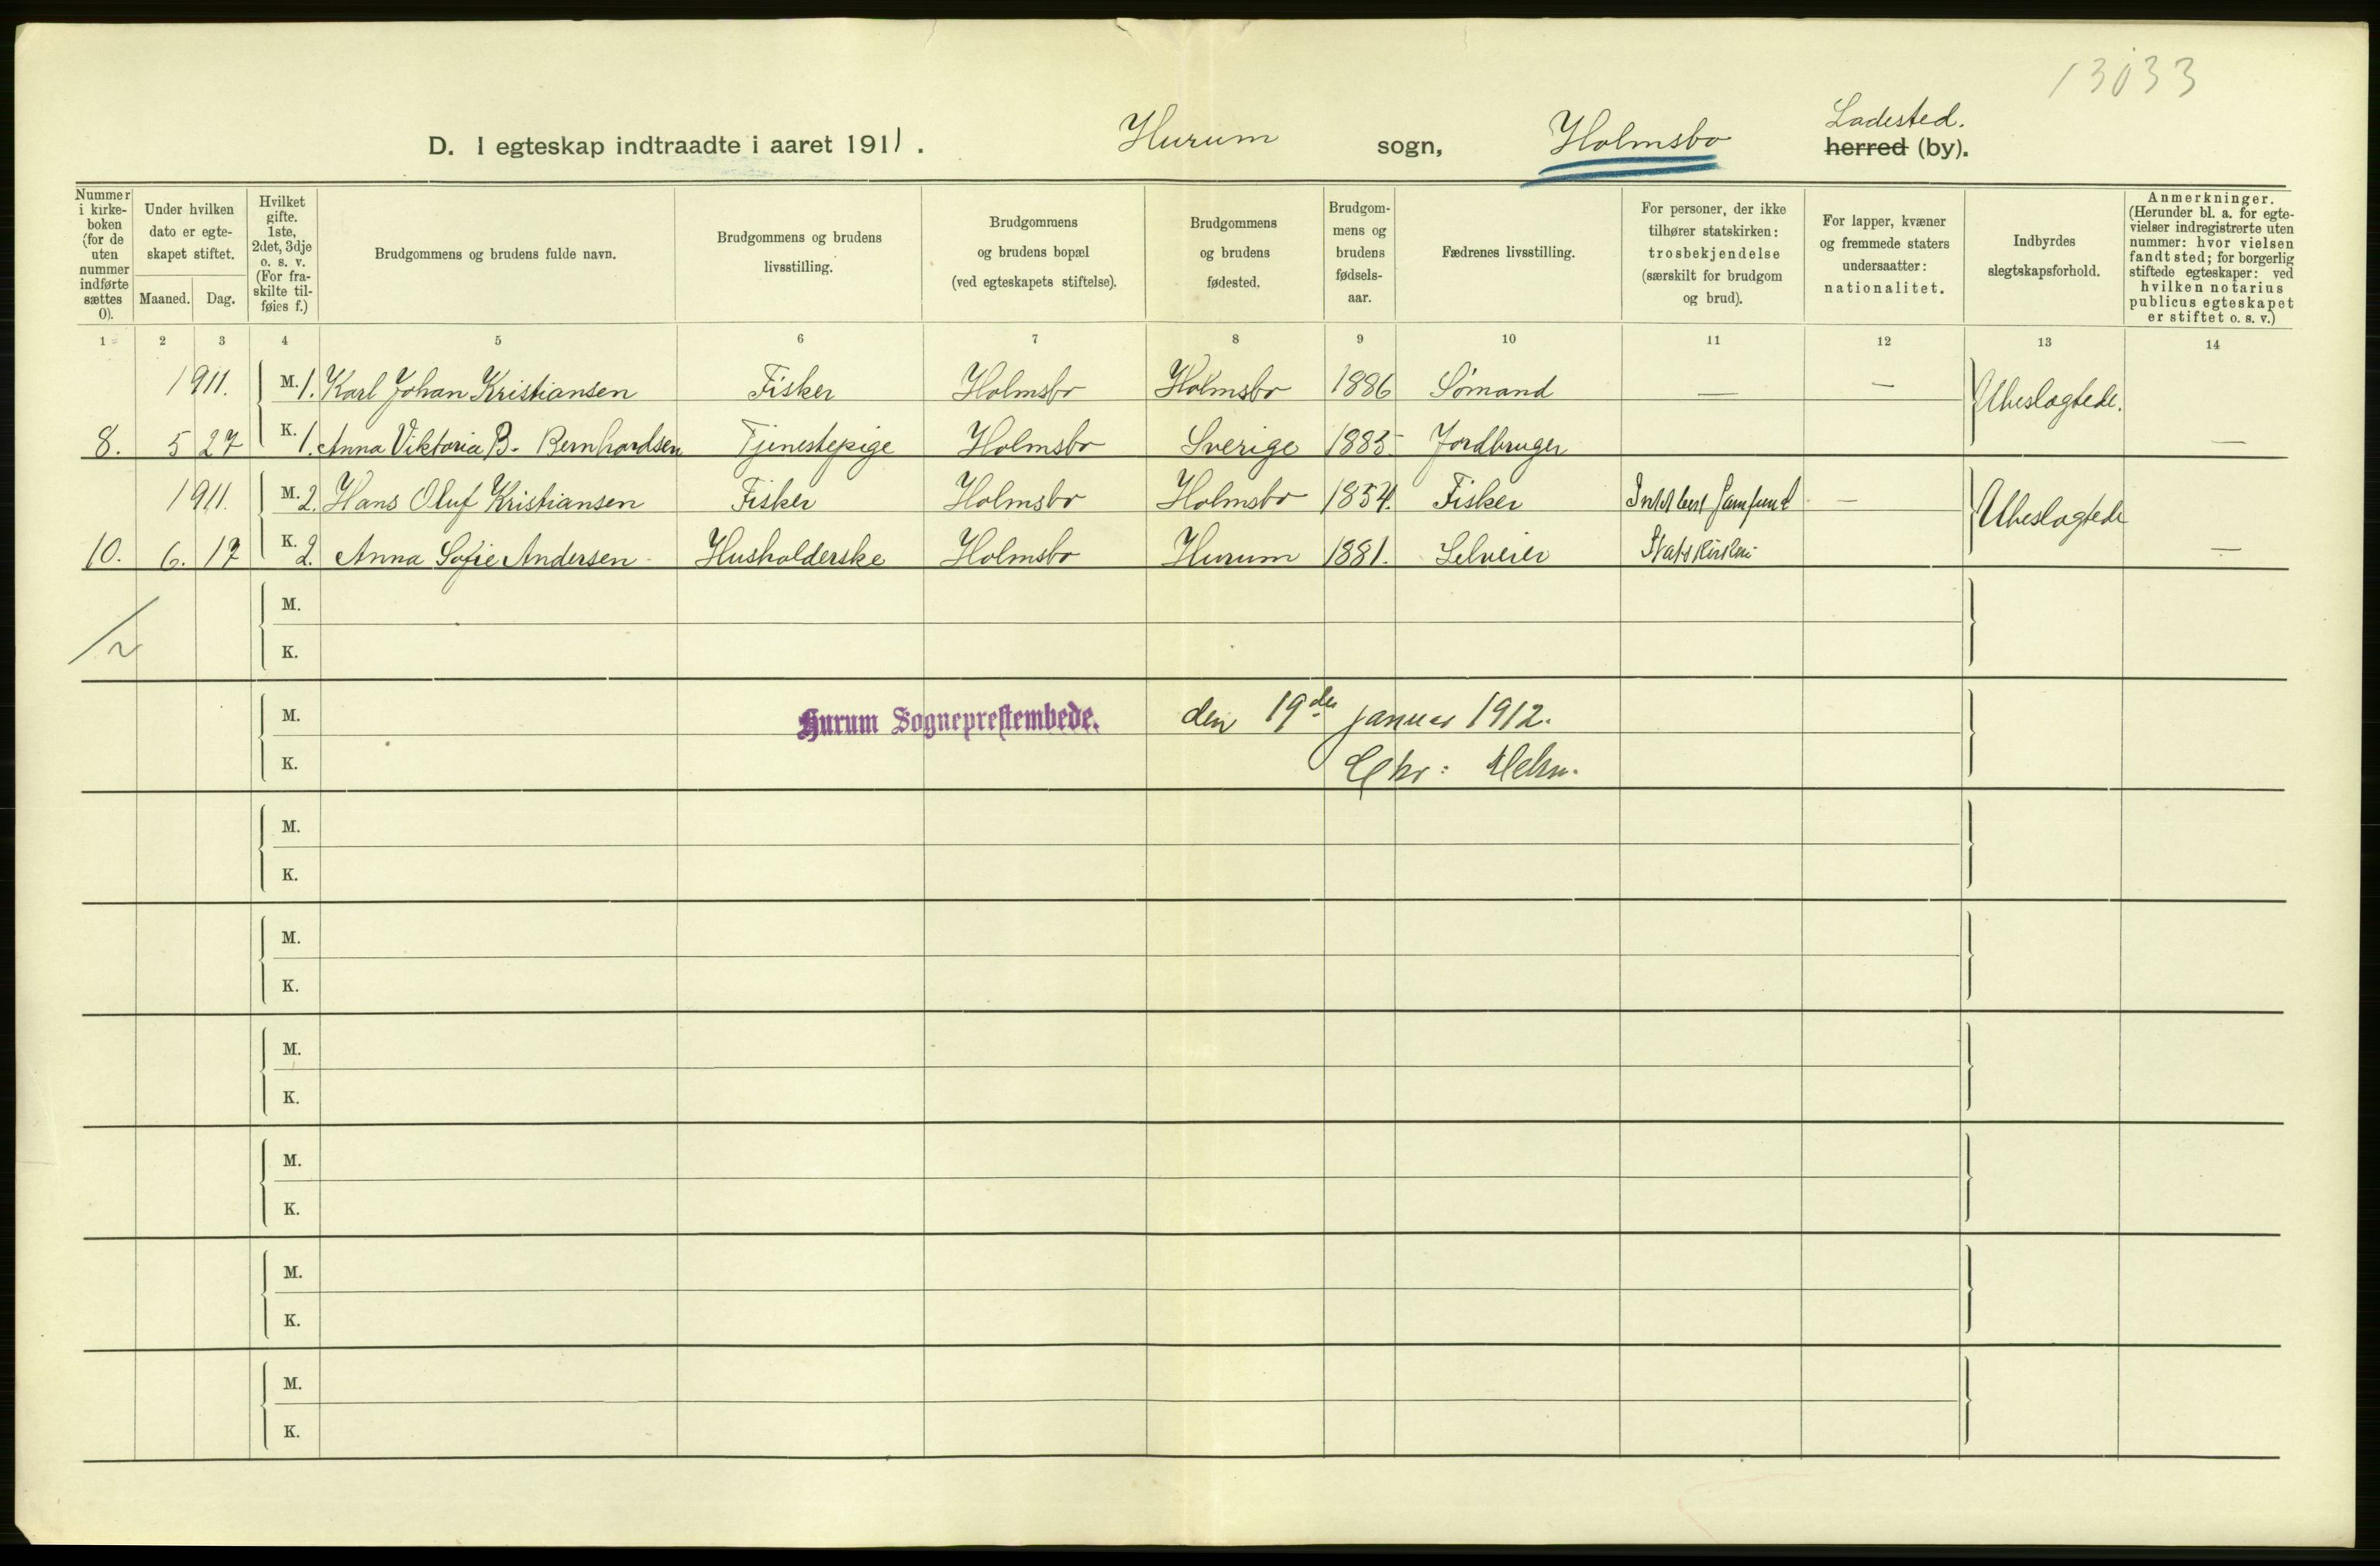 13033
Ladested.
D. I egteskap indtraadte i aaret 1911. Hurum sogn, Holmsbo herred (by).
Nummer i kirke- boken (for de uten nummer indførte sættes 0).
Under hvilken dato er egte- skapet stiftet.
Maaned. Dag.
Hvilket gifte. 1ste, 2det, 3dje o. s. v. (For fra- skilte til- føies f.)
Brudgommens og brudens fulde navn.
Brudgommens og brudens livsstilling.
Brudgommens og brudens bopæl (ved egteskapets stiftelse).
Brudgommens og brudens fødested.
Brudgom- mens og brudens fødsels- aar.
Fædrenes livsstilling.
For personer, der ikke tilhører statskirken: trosbekjendelse (særskilt for brudgom og brud).
For lapper, kvæner og fremmede staters undersaatter: nationalitet.
Indbyrdes slegtskapsforhold.
Anmerkninger. (Herunder bl. a. for egte- vielser indregistrerte uten nummer: hvor vielsen fandt sted; for borgerlig stiftede egteskaper: ved hvilken notarius publicus egteskapet er stiftet o. s. v.)
1 2 3 4 5 6 7 8 9 10 11 12 13 14
1911. M. 1. Karl Johan Kristiansen Fisker Holmsbo Holmsbo 1886 Sømand — — Ubeslagtede.
8. 5 27 K. 1. Anna Viktoria B. Bernhardsen Tjenestepige Holmsbo Sverige 1885 Jordbruger —
1911. M. 2. Hans Oluf Kristiansen Fisker Holmsbo Holmsbo 1854. Fisker samfund — Ubeslagtede
10. 6. 17 K. 2. Anna Sofie Andersen Husholderske Holmsbo Hurum 1881. Selveier Statskirken —
M.
K.
/2
M. Hurum Sogneprestembede. den 19de januar 1912.
K. Chr:
M.
K.
M.
K.
M.
K.
M.
K.
M.
K.
M.
K.